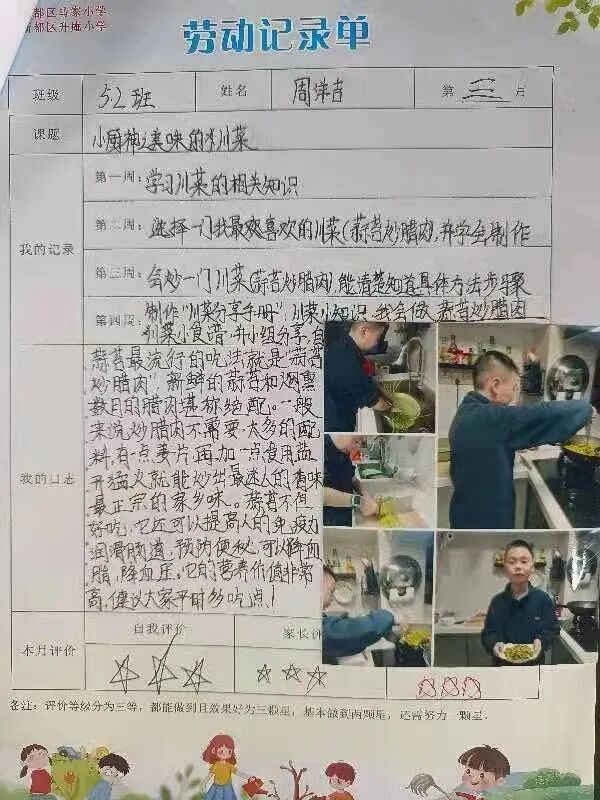 都区马家小学
新都区升庵小学
劳动记录单
班级 5.2班 姓名 周洋吉 第 三 月
课题 小厨神之美味的川菜
我的记录
第一周:学习川菜的相关知识
第二周:选择一门我最喜欢的川菜(蒜苔炒腊肉),并学会制作
第三周:会炒一门川菜(蒜苔炒腊肉),能清楚知道具体方法步骤
第四周:制作"川菜分享手册",川菜小知识,我会做 蒜苔炒腊肉
川菜小食谱,并小组分享,自
我的日志
蒜苔最流行的吃法就是"蒜苔
炒腊肉",新鲜的蒜苔和烟熏
数月的腊肉堪称绝配。一般
来说炒腊肉不需要太多的配
料,有一点姜片,再加一点食用盐
开猛火就能炒出最迷人的香味
最正宗的家乡味。蒜苔不但
好吃,它还可以提高人的免疫力
润滑肠道,预防便秘,可以降血
脂,降血压。它的营养价值非常
高,建议大家平时多吃点!
本月评价 自我评价 家长评
备注:评价等级分为三等,都能做到且效果好为三颗星,基本做到两颗星,还需努力一颗星.